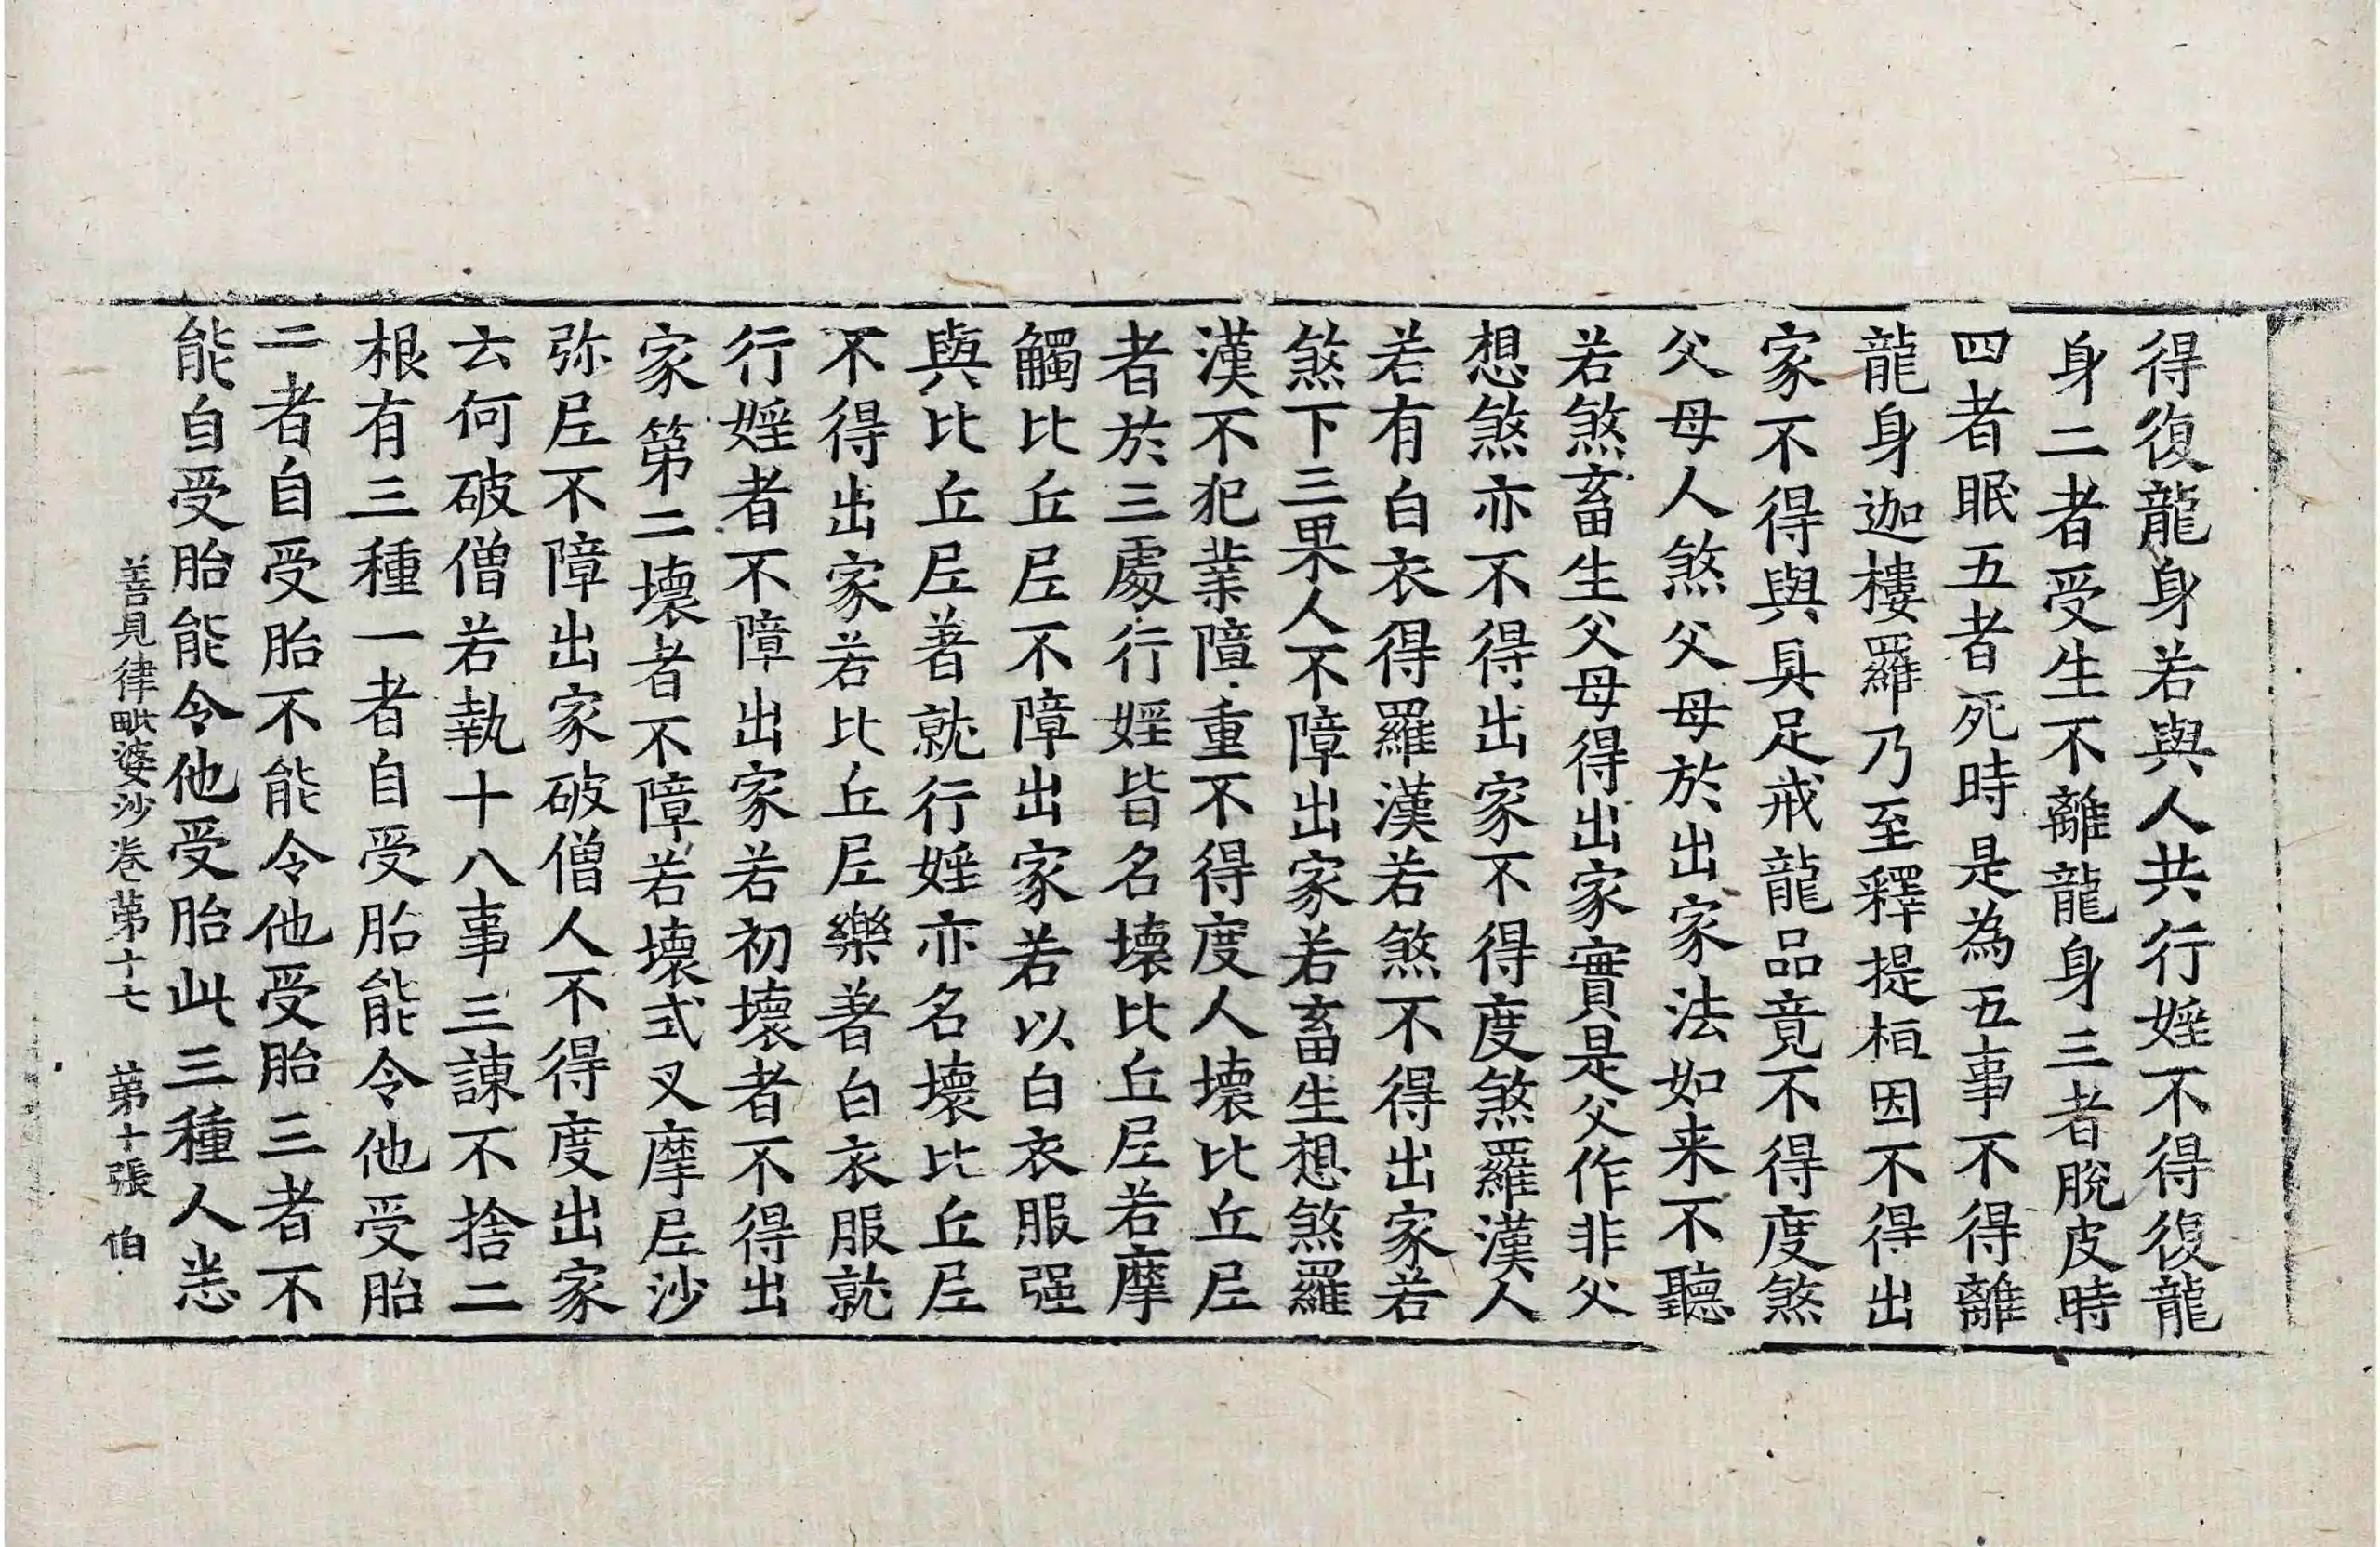 得復龍身若與人共行婬不得復龍
身二者受生不離龍身三者脫皮時
四者眠五者死時是為五事不得離
龍身迦樓羅乃至釋提桓因不得出
家不得與具足戒龍品竟不得度煞
父母人煞父母於出家法如来不聽
若煞畜生父母得出家實是父作非父
想煞亦不得出家不得度煞羅漢人
若有白衣得羅漢若煞不得出家若
煞下三果人不障出家若畜生想煞羅
漢不犯業障重不得度人壞比丘尼
者於三處行婬皆名壞比丘尼若摩
觸比丘尼不障出家若以白衣服强
與比丘尼著就行婬亦名壞比丘尼
不得出家若比丘尼樂著白衣服就
行婬者不障出家若初壞者不得出
家第二壞者不障若壞式叉摩尼沙
弥尼不障出家破僧人不得度出家
云何破僧若執十八事三諫不捨二
根有三種一者自受胎能令他受胎
二者自受胎不能令他受胎三者不
能自受胎能令他受胎此三種人悉
善見律毗婆沙卷苐十七 苐十張 伯